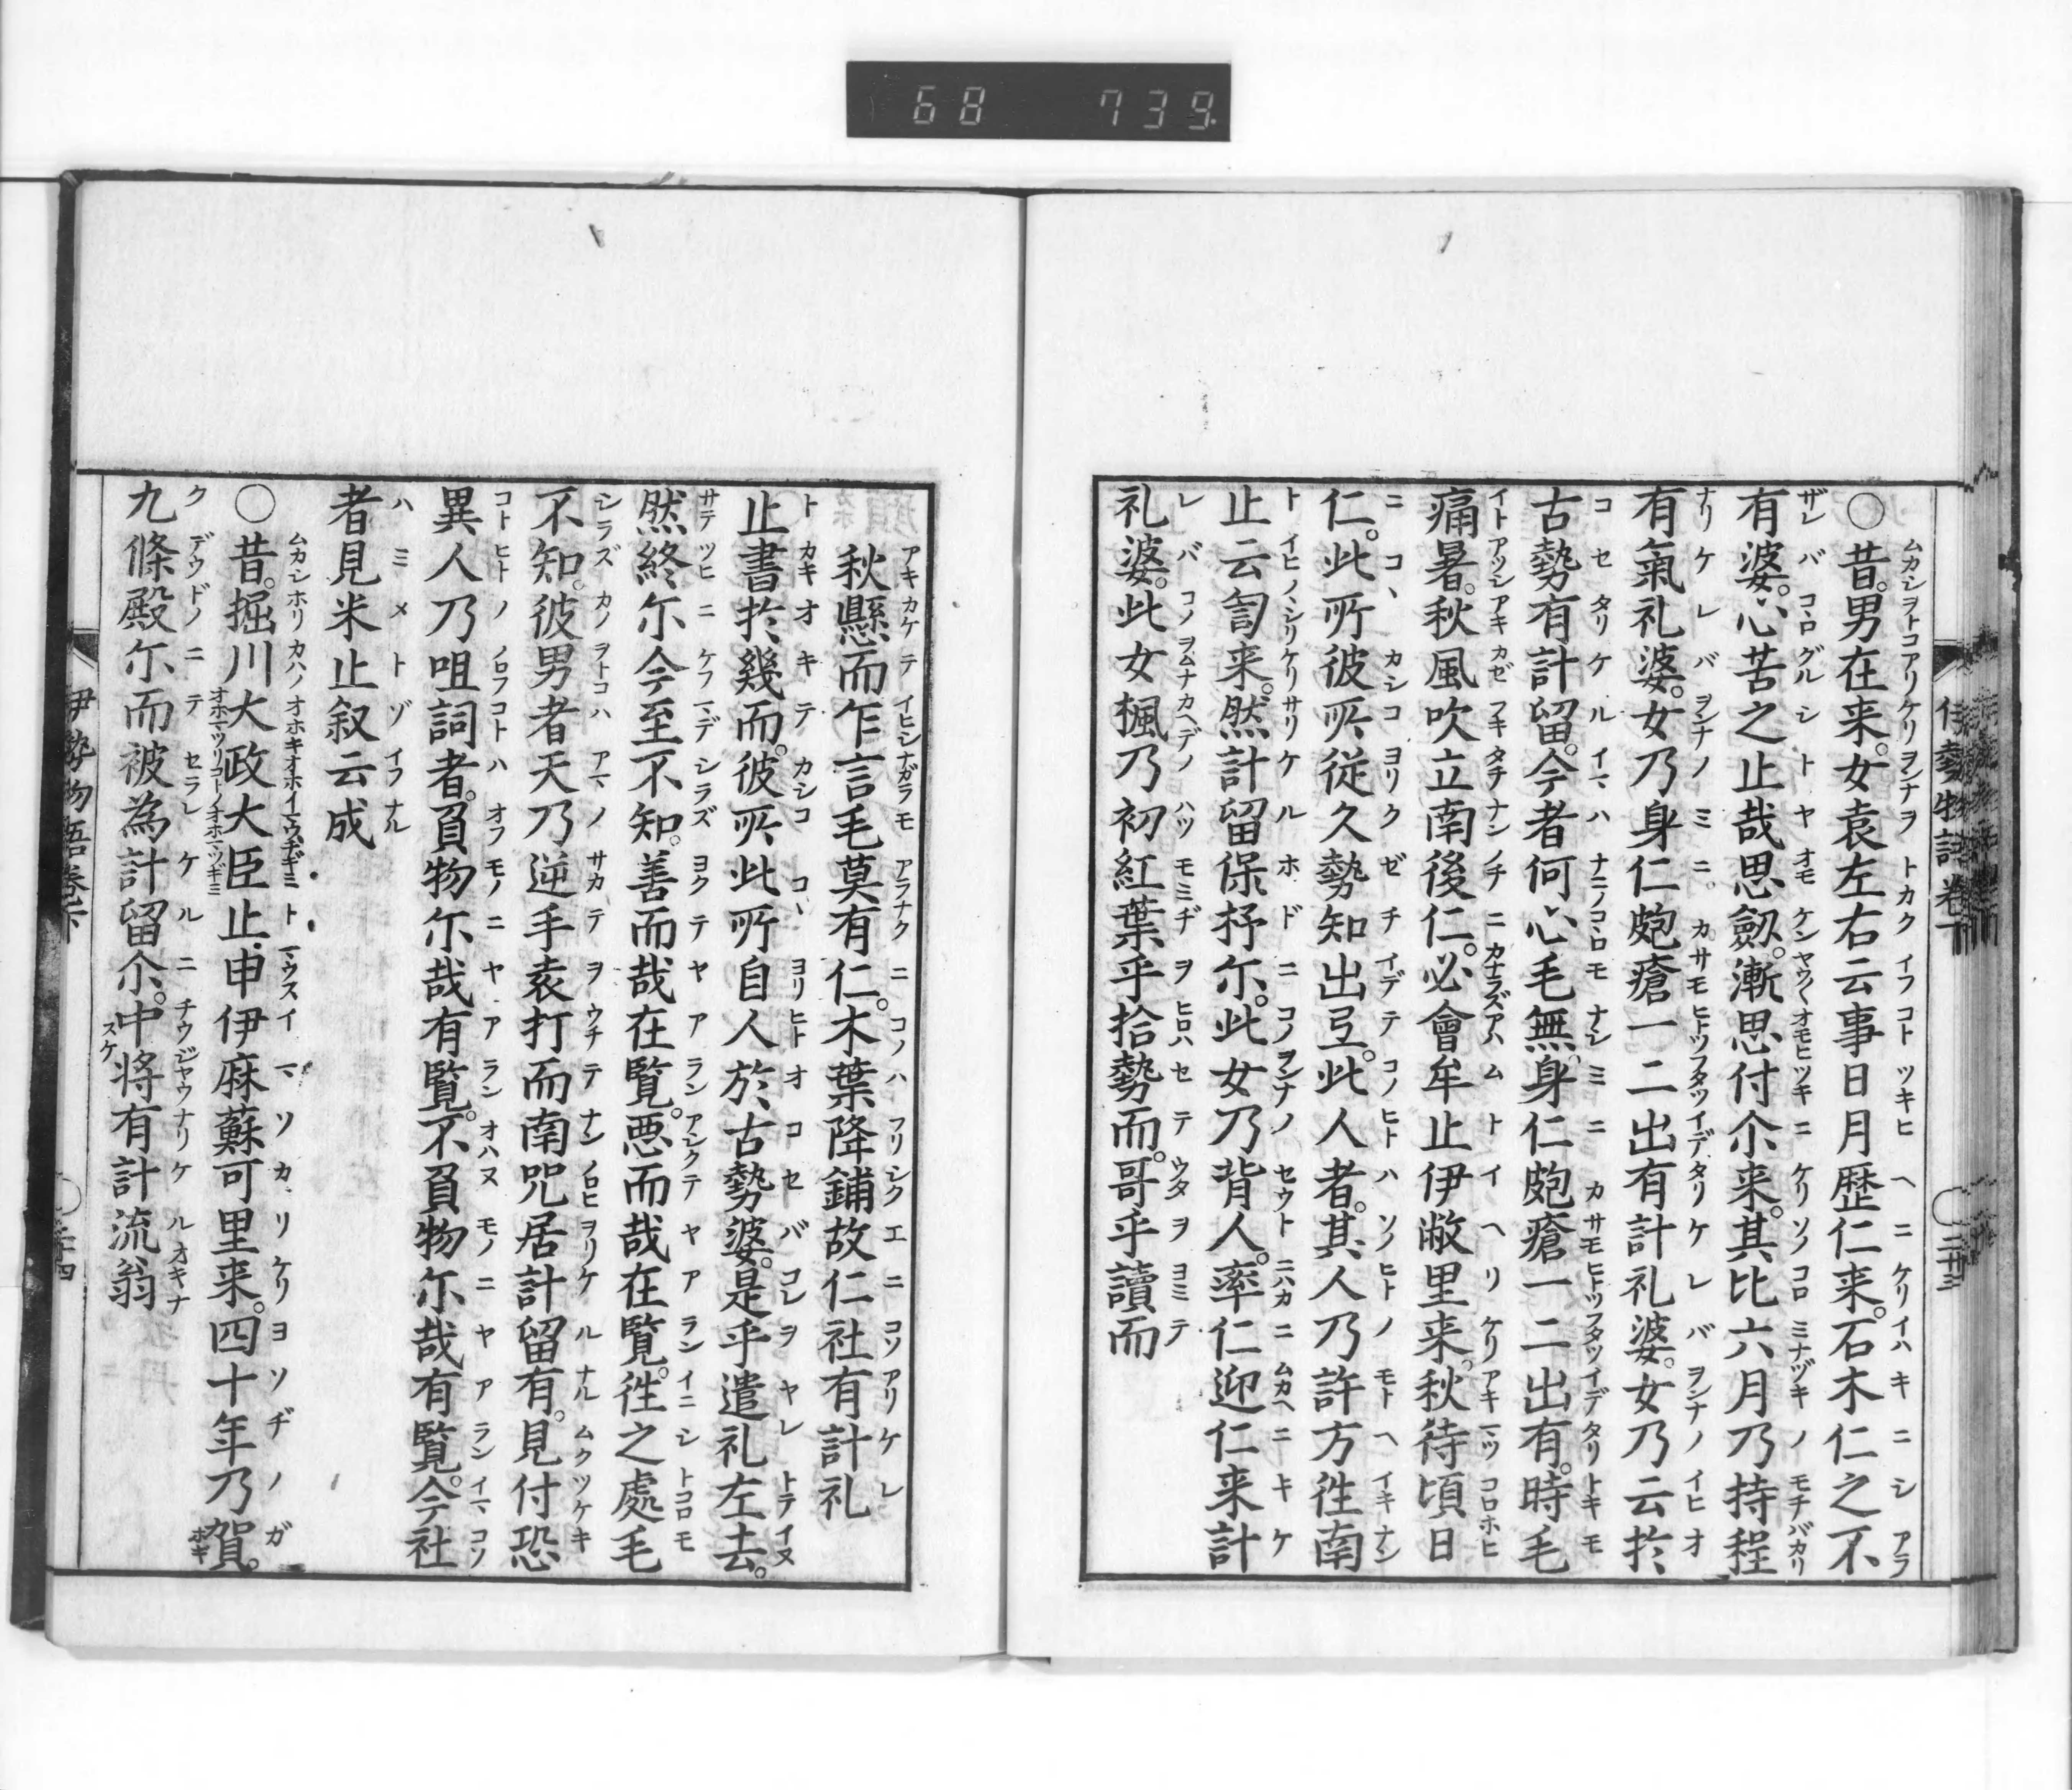 68 739
伊勢物語卷下
二十三
○昔。男在来。女袁左右云事日月歴仁来。石木仁之不
有婆。心苦之止哉思劔。漸思付尒来。其比六月乃持程
有氣礼婆。女乃身仁皰瘡一二出有計礼婆。女乃云扵
古勢有計留。今者何心毛無。身仁皰瘡一二出有。時毛
痛暑。秋風吹立南後仁。必會牟止伊敝里来。秋待頃日
仁。此所彼所従久勢知出弖。此人者。其人乃許方徃南
止云訇来。然計留保抒尓。此女乃背人。率仁迎仁来計
礼婆。此女楓乃初紅葉乎拾勢而。哥乎讀而
秋懸而乍言毛莫有仁。木葉降鋪故仁社有計礼
止書扵幾而。彼所此所自人於古勢婆。是乎遣礼左去。
然終尓今至不知。善而哉在覧。悪而哉在覧。徃之處毛
不知。彼男者天乃逆手袁打而南咒居計留有。見付恐
異人乃咀詞者。負物尓哉有覧。不負物尓哉有覧。今社
者見米止叙云成
○昔。掘川大政大臣止申伊麻蘇可里来。四十年乃賀。
九條殿尓而被為計留尒。中将有計流翁
伊勢物語卷下
二十四